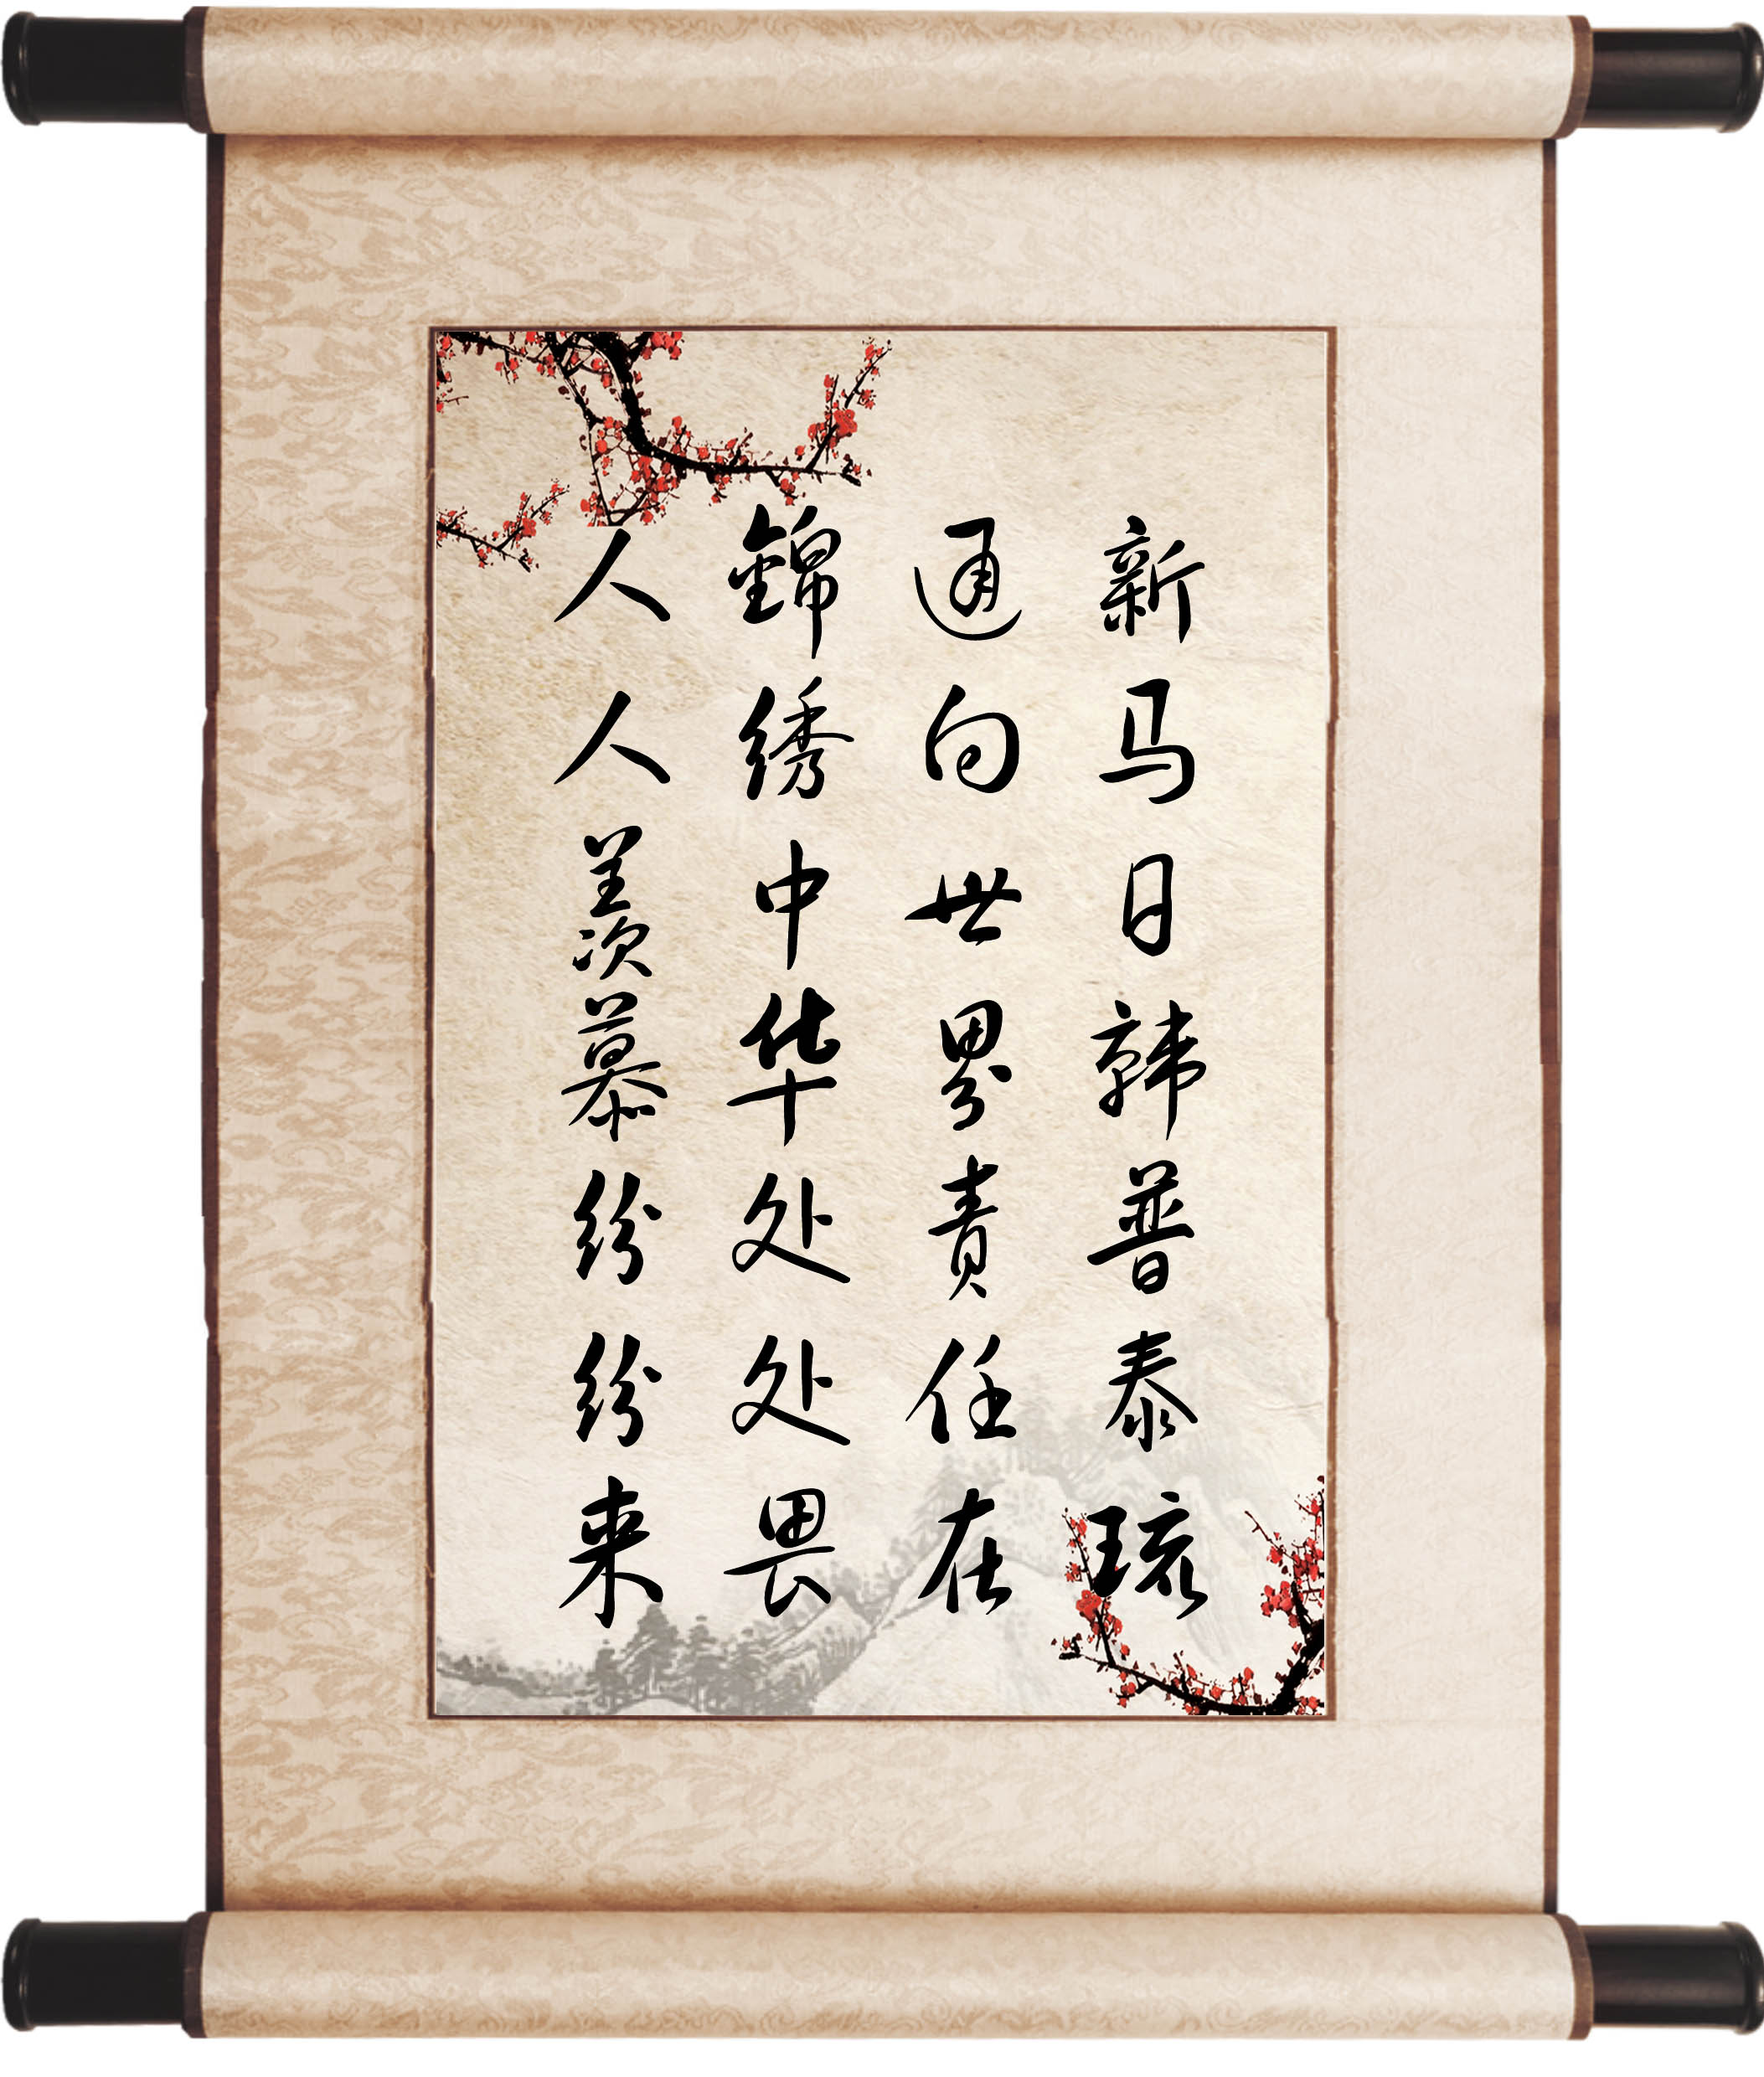 新马日韩普泰琉
通向世界责任在
錦绣中华处处畏
人人羡慕纷纷来